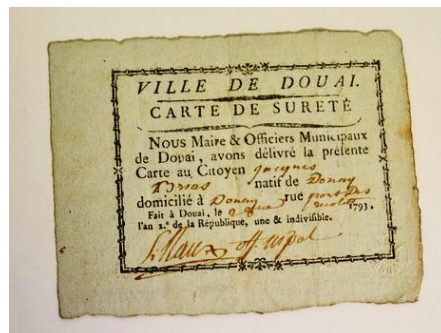 VILLE DE DOUAI.
CARTE DE SURETÉ
NOUS Maire & Officiers Municipaux
de Douai, avons délivré la présente
Carte au Citoyen Jacques
natif de Douay
domicilié à Douay rue
Fait à Douai, le 1793,
l'an 2.e de la République, une & indivisible.